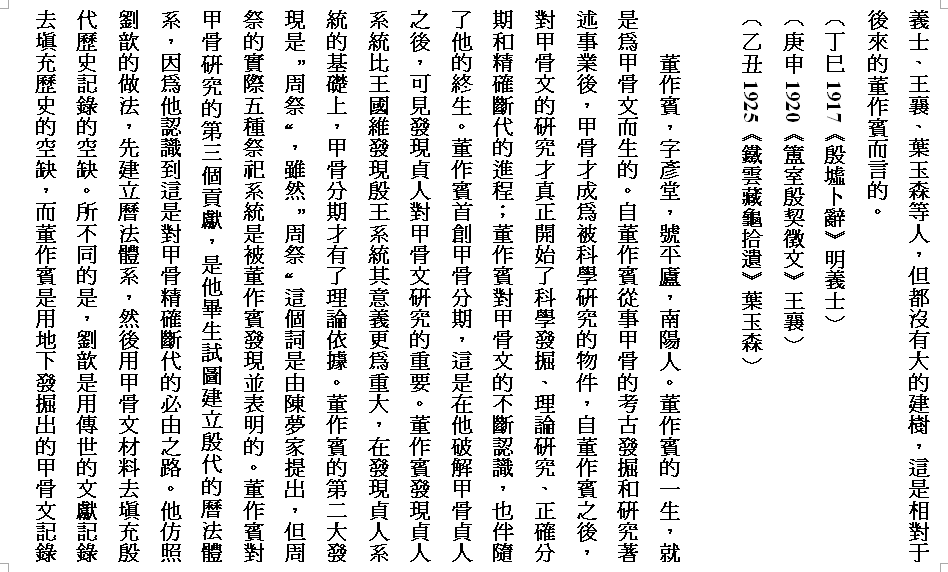 義士、王襄、葉玉森等人，但都沒有大的建樹，這是相對于
後來的董作賓而言的。
（丁巳 1917《殷墟卜辭》明義士）
（庚申 1920《簠室殷契徵文》王襄）
（乙丑 1925《鐵雲藏龜拾遺》葉玉森）
董作賓，字彥堂，號平廬，南陽人。董作賓的一生，就
是爲甲骨文而生的。自董作賓從事甲骨的考古發掘和研究著
述事業後，甲骨才成爲被科學研究的物件，自董作賓之後，
對甲骨文的研究才真正開始了科學發掘、理論研究、正確分
期和精確斷代的進程；董作賓對甲骨文的不斷認識，也伴隨
了他的終生。董作賓首創甲骨分期，這是在他破解甲骨貞人
之後，可見發現貞人對甲骨文研究的重要。董作賓發現貞人
系統比王國維發現殷王系統其意義更爲重大，在發現貞人系
統的基礎上，甲骨分期才有了理論依據。董作賓的第二大發
現是”周祭“，雖然”周祭“這個詞是由陳夢家提出，但周
祭的實際五種祭祀系統是被董作賓發現並表明的。董作賓對
甲骨研究的第三個貢獻，是他畢生試圖建立殷代的曆法體
系，因爲他認識到這是對甲骨精確斷代的必由之路。他仿照
劉歆的做法，先建立曆法體系，然後用甲骨文材料去塡充殷
代歷史記錄的空缺。所不同的是，劉歆是用傳世的文獻記錄
去塡充歷史的空缺，而董作賓是用地下發掘出的甲骨文記錄